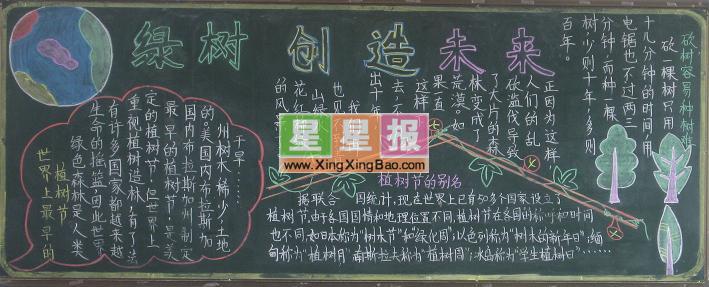 绿树 创造未来
世界上最早的
植树节
绿色森林是人类
生命的摇篮,因此世界
有许多国家都越来越
重视植树造林,有了法
定的植树节,但世界上
最早的植树节,是美
国内布拉斯加州制定
的。美国内布拉斯加
州树木稀少,土地
干旱……
砍树容易种树难
砍一棵树只用
十几分钟的时间,用
电锯也不过两三
分钟,而种一棵
树少则十年,多则
百年。
正因为这样
人们的乱
砍滥伐导致
了大片的森
林变成了
荒漠。如
果直
这样
去,不
出十年
我
也见
山绿
花红
的风景
星星报
www.XingXingBao.com
植树节的别名
据联合国统计,现在世界上已有50多个国家设立了
植树节,由于各国国情和地理位置不同,植树节在各国的称呼和时间
也不同,如日本称为“树木节”和“绿化周”;以色列称为“树木的新年日”;缅
甸称为“植树月”南斯拉夫称为“植树周”;冰岛称为“学生植树日”……